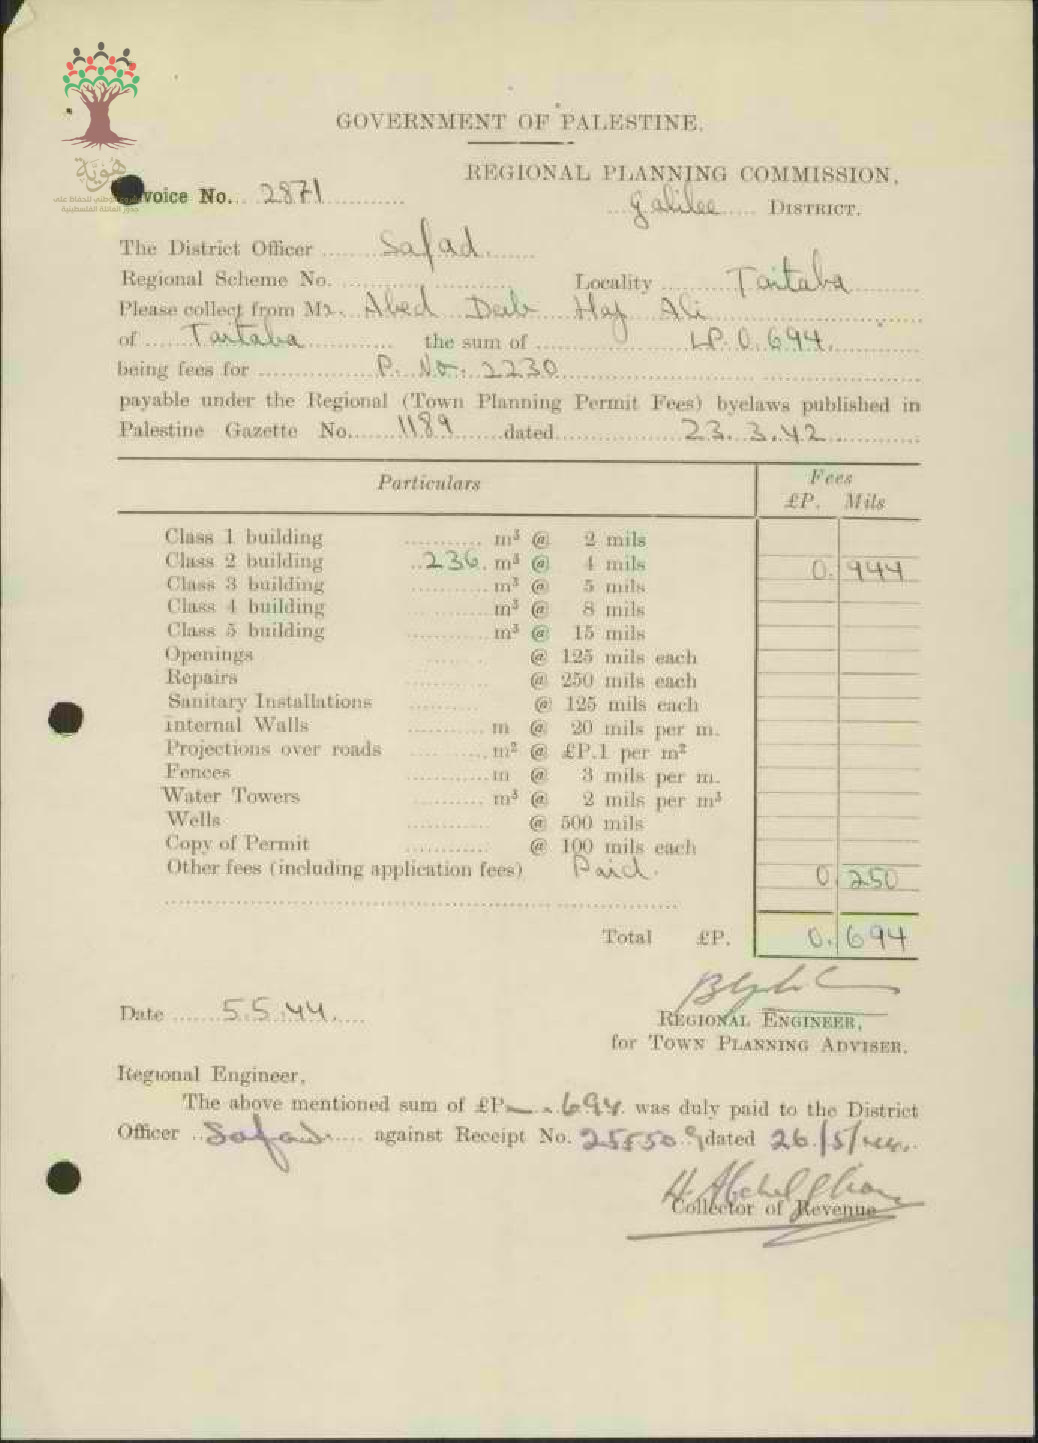 GOVERNMENT OF PALESTINE.
REGIONAL PLANNING COMMISSION,
هُويّة
voice No. 2871
Galilee DISTRICT.
The District Officer Safad.
Regional Scheme No.
Locality Taitaba
Please collect from Mr. Abed Deib Haj Ali
of Taitaba the sum of LP. 0.694.
being fees for P. No. 2230
payable under the Regional (Town Planning Permit Fees) byelaws published in
Palestine Gazette No. 1189 dated 23.3.42
Particulars Fees
£P. Mils
Class 1 building m³ @ 2 mils
Class 2 building 236. m³ @ 4 mils 0. 944
Class 3 building m³ @ 5 mils
Class 4 building m³ @ 8 mils
Class 5 building m³ @ 15 mils
Openings @ 125 mils each
Repairs @ 250 mils each
Sanitary Installations @ 125 mils each
Internal Walls m @ 20 mils per m.
Projections over roads m² @ £P.1 per m²
Fences m @ 3 mils per m.
Water Towers m³ @ 2 mils per m³
Wells @ 500 mils
Copy of Permit @ 100 mils each
Other fees (including application fees) Paid. 0. 250
Total £P. 0. 694
Date 5.5.44.
REGIONAL ENGINEER,
for TOWN PLANNING ADVISER.
Regional Engineer,
The above mentioned sum of £P —.694. was duly paid to the District
Officer Safad against Receipt No. 255509 dated 26/5/44.
Collector of Revenue